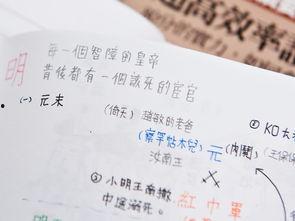 超高效率
明
每一個智障的皇帝
背後都有一個該死的宦官
(一) 元末
(倚天) 趙敏的老爸
KO大
(察罕帖木兒) 元 (內鬨) (王保保
汝南王
③ 小明王南撤,
中途溺死。
紅巾軍